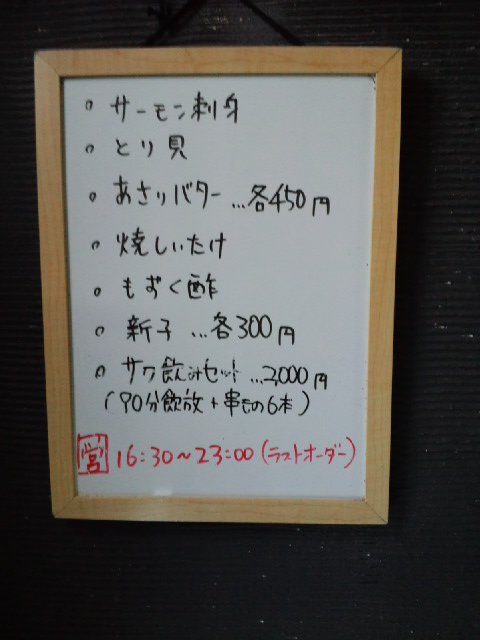 。サーモン刺身
。とり貝
。あさりバター…各450円
。焼しいたけ
。もずく酢
。新子…各300円
。サク飲みセット…2,000円
(90分飲放+串もの6本)
営 16:30~23:00(ラストオーダー)